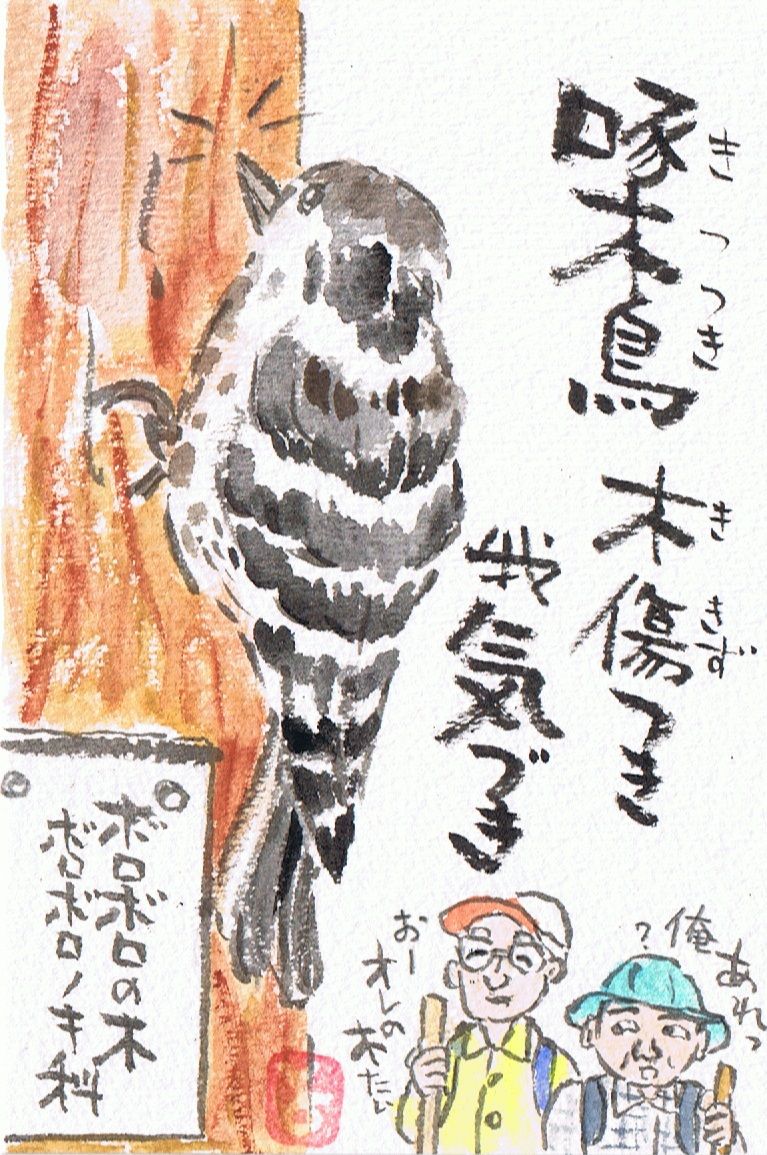 啄木鳥
きつつき
木傷つき
ききず
我気づき
あれっ
俺
?
おー
オレの
ボロボロの木
ボロボロノキ科